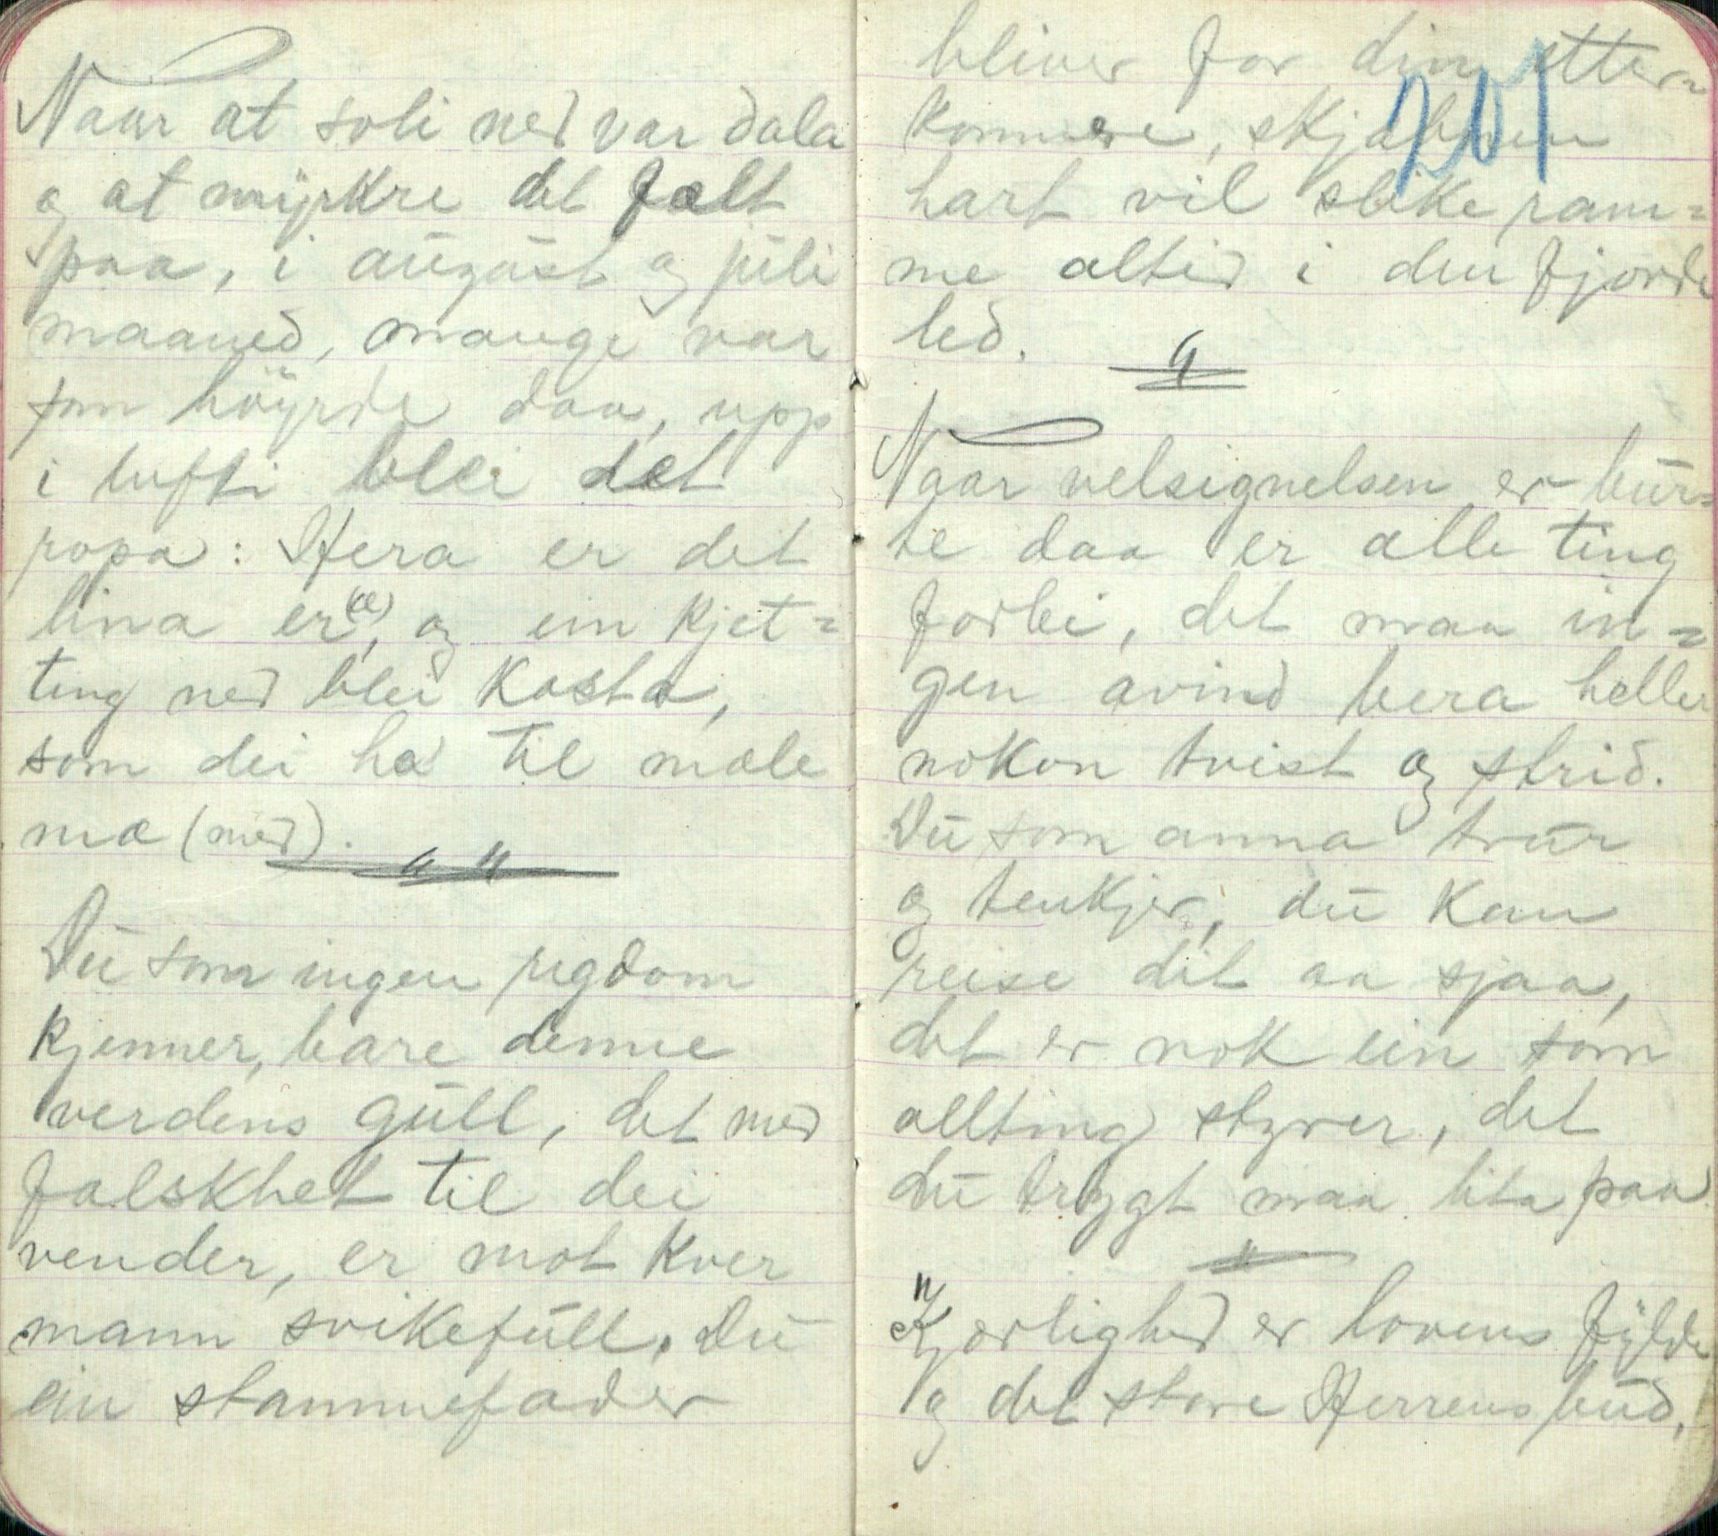 Naar at soli ned var dala
og at myrkre det falt
paa, i august og juli
maaned, mange var
som höyrde daa, upp
i lufti blei det
ropa: Hera er det
lina er(æ), og ein kjet=
ting ned blei kasta,
som dei ha til male
ma (med).
" "
Du som ingen rigdom
kjenner, bare denne
verdens gull, det med
falskhet til dei
vender, er mot kver
mann svikefull. Du
ein stammefader
bliver for din etter=
kommere, skjæbnen
hart vil slike ram=
me altid i den fjorde
led.
"
201
Naar velsignelsen er bur=
te daa er alle ting
forbi, det maa in=
gen avind bera heller
nokon tvist og strid.
Du som anna trur
og tenkjer, du kan
reise dit aa sjaa,
det er nok ein som
allting styrer, det
du trygt maa lita paa
"
"Kjærlighed er lovens fylde
og det store Herrens bud,